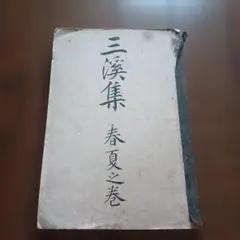 三溪集
春夏之巻